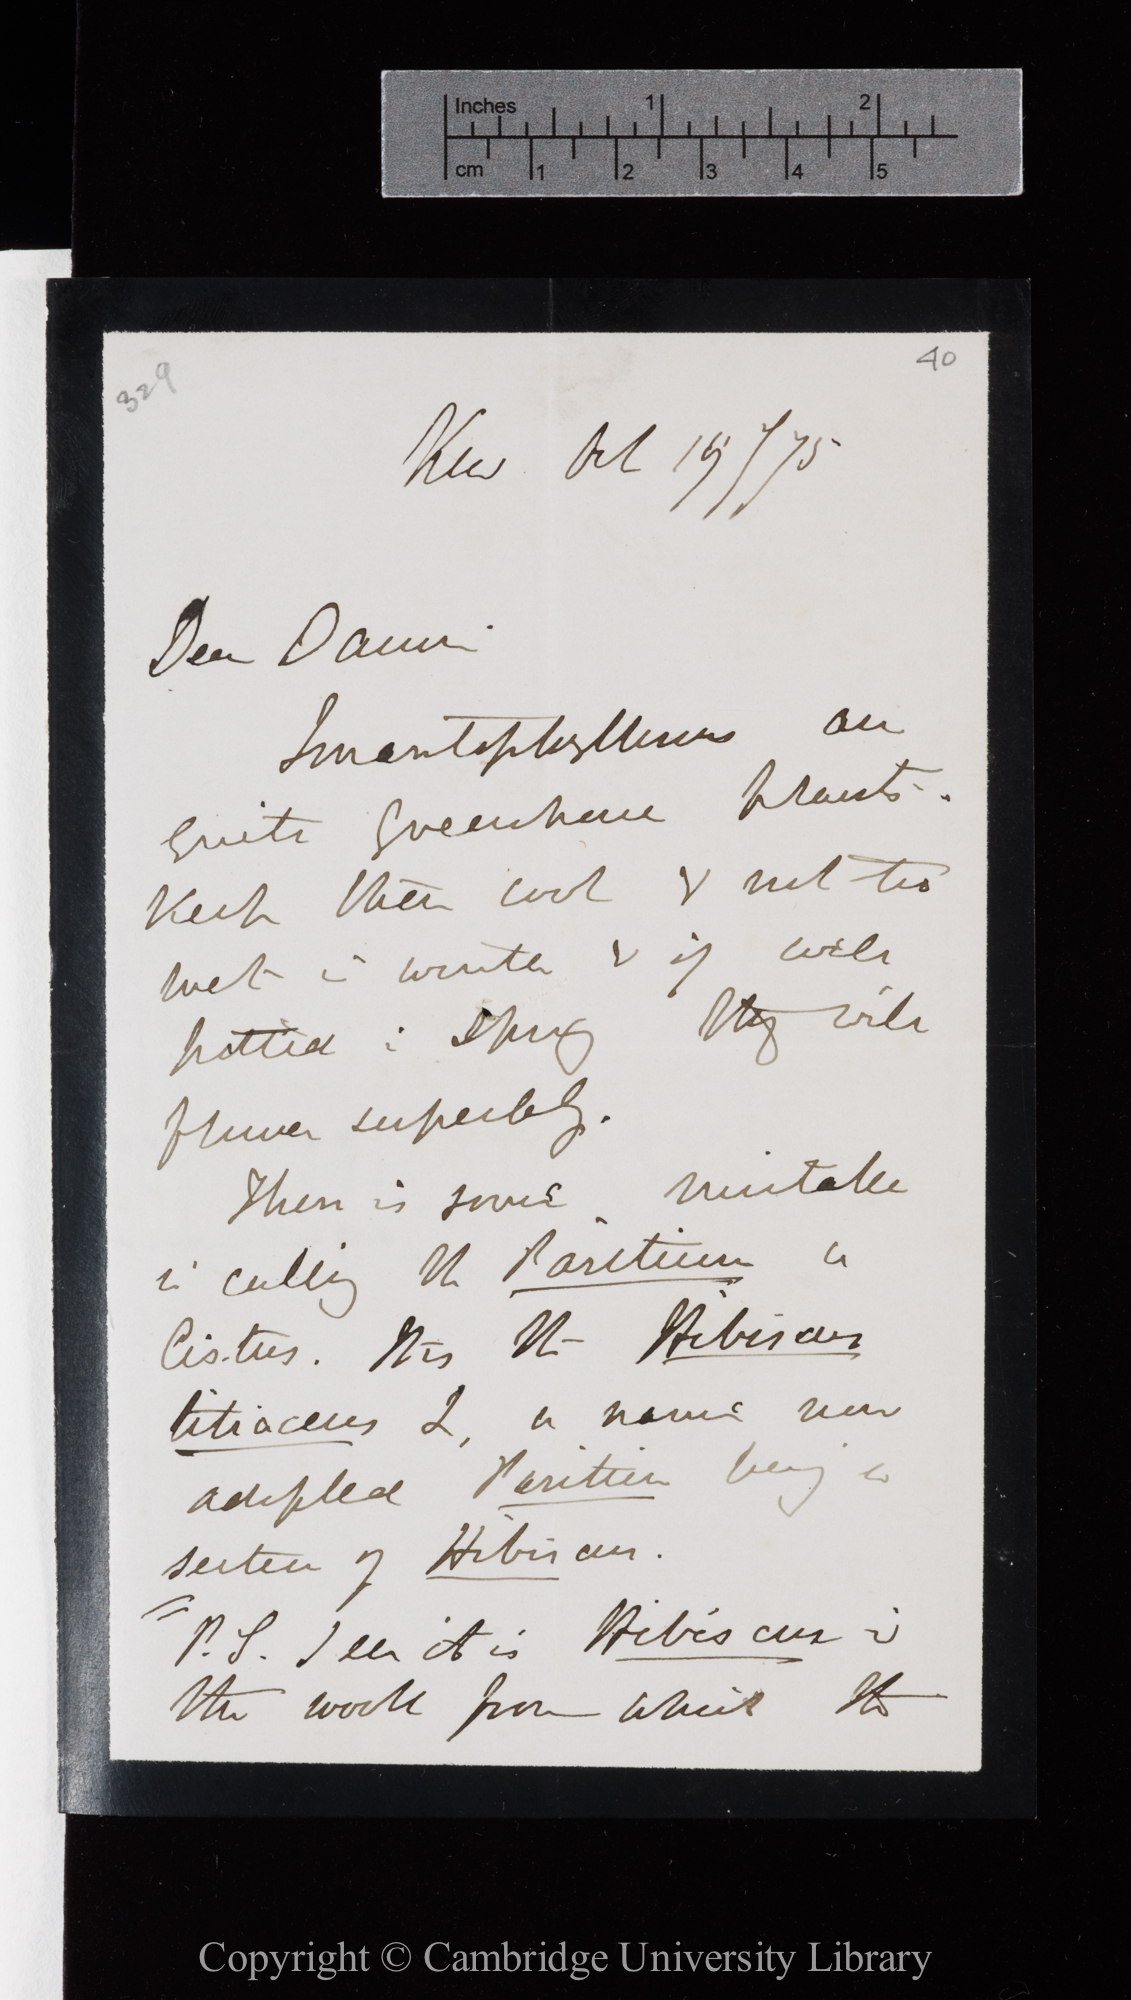 Inches 1 2
cm 1 2 3 4 5
329
40
Kew Oct 19/75
Dear Darwin
Imantophyllums are
quite Greenhouse plants.
Keep them cool & not too
wet in winter & if well
potted in Spring they will
flower superbly.
There is some mistake
in calling the Paritium a
Cistus. It is the Hibiscus
tiliaceus L, a name now
adopted Paritium being a
section of Hibiscus.
P.S. I see it is Hibiscus in
the work from which the
Copyright © Cambridge University Library